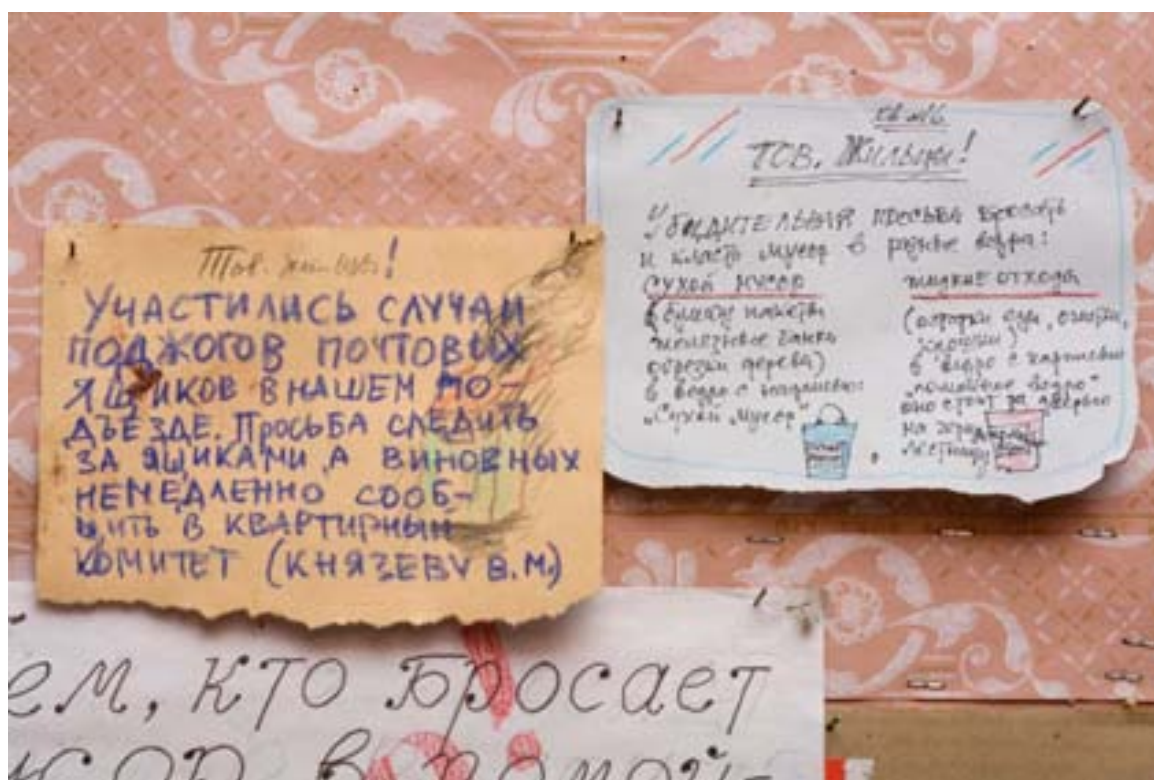 Тов. жильцы!
УЧАСТИЛИСЬ СЛУЧАИ
ПОДЖОГОВ ПОЧТОВЫХ
ЯЩИКОВ В НАШЕМ ПО-
ДЪЕЗДЕ. ПРОСЬБА СЛЕДИТЬ
ЗА ЯЩИКАМИ, А ВИНОВНЫХ
НЕМЕДЛЕННО СООБ-
ЩИТЬ В КВАРТИРНЫЙ
КОМИТЕТ (КНЯЗЕВУ В.М.)
ТОВ. Жильцы!
Убедительная просьба бросать
и класть мусор в разные вёдра:
СУХОЙ МУСОР
(бумагу пакеты
банки
обрезки дерева)
в ведро с надписью:
"Сухой мусор"
ЖИДКИЕ ОТХОДЫ
(
в ведро с
"помойное ведро"
оно стоит за дверью
на
лестницу
ем, кто бросает
усор в помой-